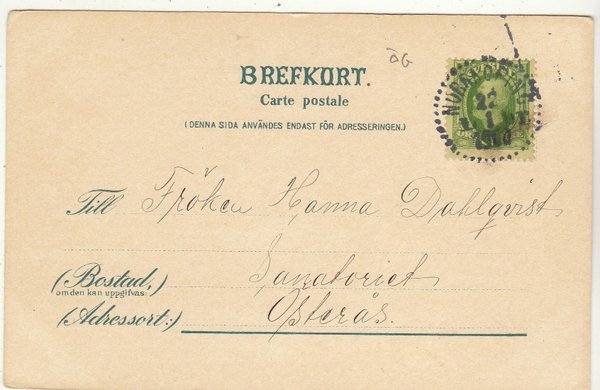 ÖG
BREFKORT.
Carte postale
(DENNA SIDA ANVÄNDES ENDAST FÖR ADRESSERINGEN.)
Till Fröken Hanna Dahlqvist
(Bostad,) Sanatoriet
om den kan uppgifvas.
(Adressort:) Österås.
22
1